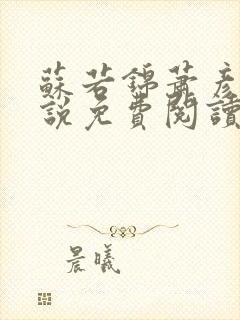 蘇若錦蕭彥
說免費閱讀
晨曦